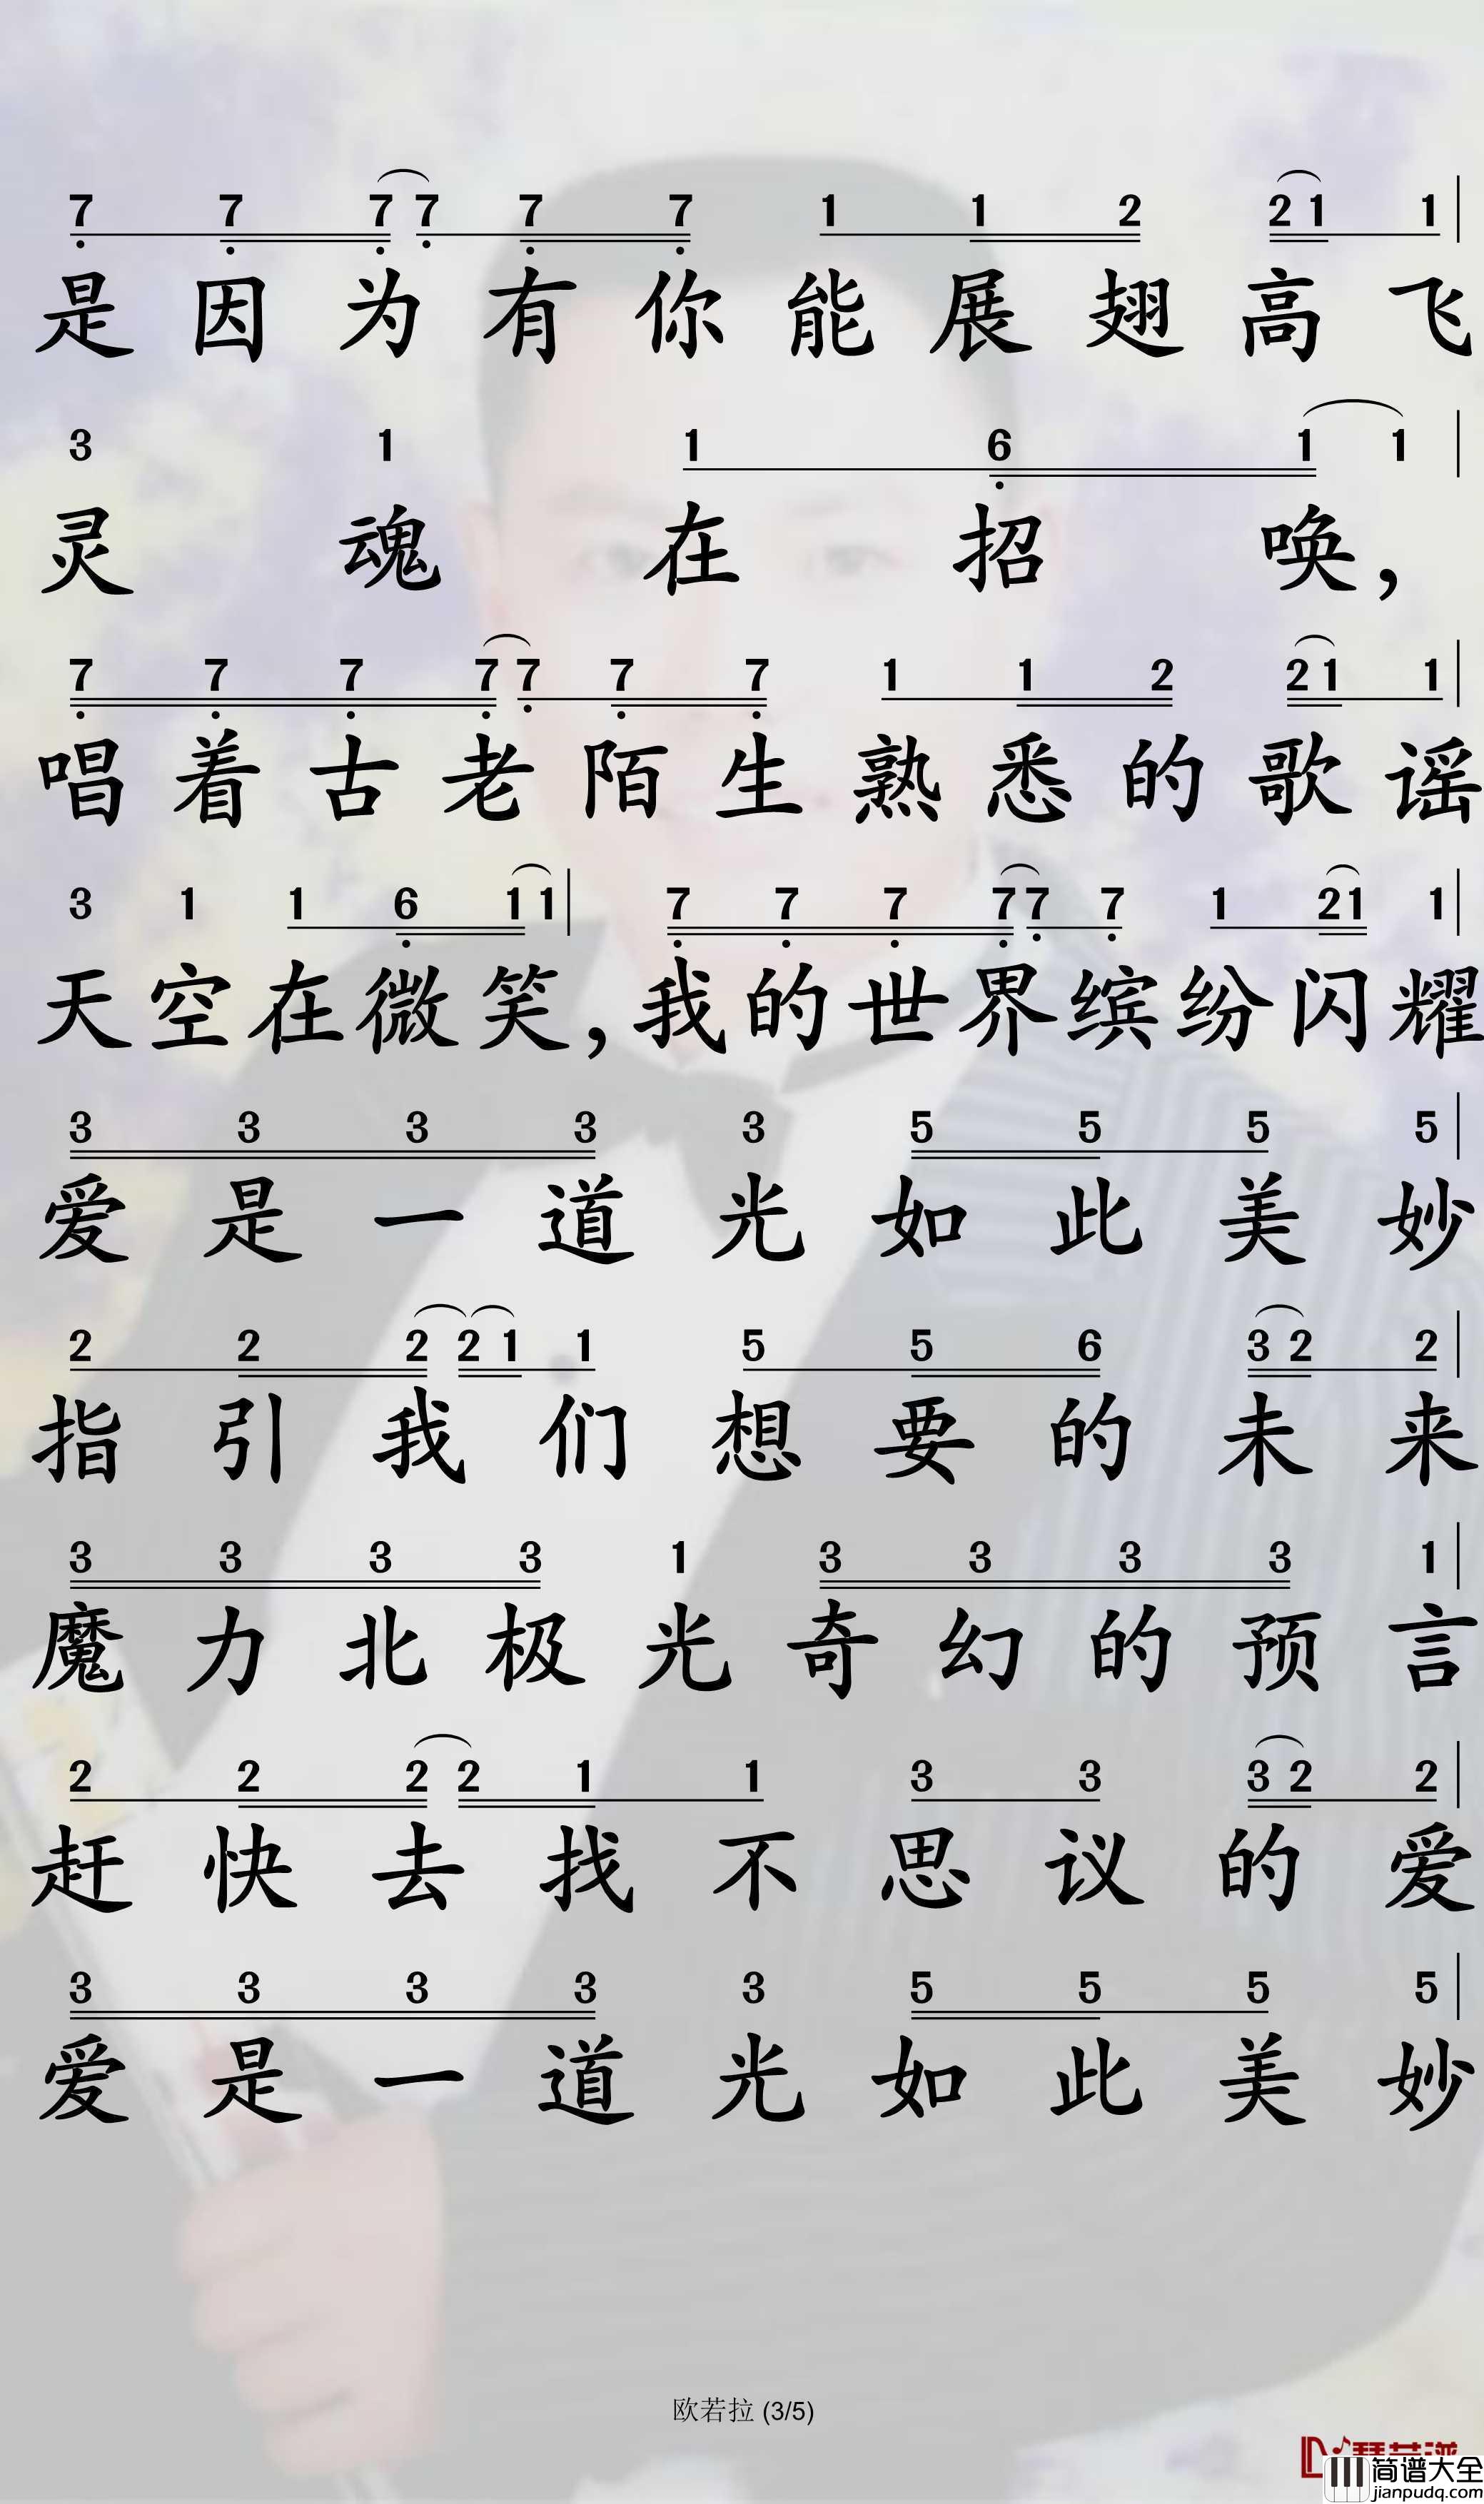 7 7 7 7 7 7 1 1 2 2 1 1
是因为有你能展翅高飞
3 1 1 6 1 1
灵魂在招唤，
7 7 7 7 7 7 7 1 1 2 2 1 1
唱着古老陌生熟悉的歌谣
3 1 1 6 1 1 7 7 7 7 7 7 1 2 1 1
天空在微笑，我的世界缤纷闪耀
3 3 3 3 3 5 5 5 5
爱是一道光如此美妙
2 2 2 2 1 1 5 5 6 3 2 2
指引我们想要的未来
3 3 3 3 1 3 3 3 3 1
魔力北极光奇幻的预言
2 2 2 2 1 1 3 3 3 2 2
赶快去找不思议的爱
3 3 3 3 3 5 5 5 5
爱是一道光如此美妙
欧若拉 (3/5)
简谱大全
jianpudq.com